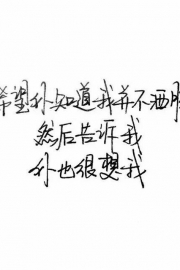 希望你知道我并不洒
然后告诉我
你也很想我